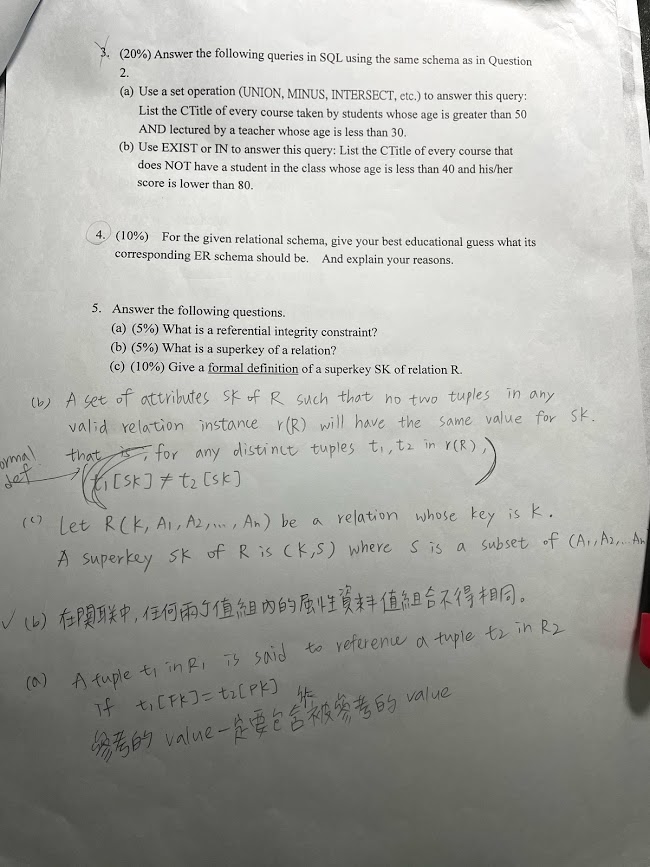 3. (20%) Answer the following queries in SQL using the same schema as in Question
2.
(a) Use a set operation (UNION, MINUS, INTERSECT, etc.) to answer this query:
List the CTitle of every course taken by students whose age is greater than 50
AND lectured by a teacher whose age is less than 30.
(b) Use EXIST or IN to answer this query: List the CTitle of every course that
does NOT have a student in the class whose age is less than 40 and his/her
score is lower than 80.
4. (10%) For the given relational schema, give your best educational guess what its
corresponding ER schema should be. And explain your reasons.
5. Answer the following questions.
(a) (5%) What is a referential integrity constraint?
(b) (5%) What is a superkey of a relation?
(c) (10%) Give a formal definition of a superkey SK of relation R.
(b) A set of attributes SK of R such that no two tuples in any
valid relation instance r(R) will have the same value for SK.
that is, for any distinct tuples t1, t2 in r(R),
ormal
def
t1[SK] ≠ t2[SK]
(c) Let R(K, A1, A2, ..., An) be a relation whose key is K.
A superkey SK of R is (K,S) where S is a subset of (A1, A2, ... An
✓ (b) 在関联中,任何兩个值組內的屬性資料值組合不得相同。
(a) A tuple t1 in R1 is said to reference a tuple t2 in R2
if t1[FK] = t2[PK]
參考的 value 一定要包含被參考的 value